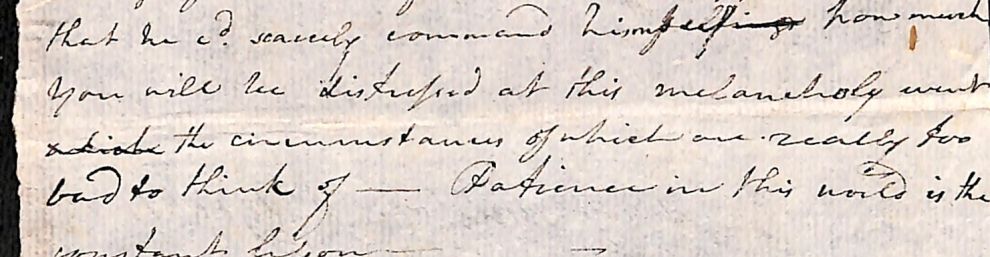 that he cd. scarcely command his feelings how much
you will be distressed at this melancholy event
which the circumstances of which are really too
bad to think of — Patience in this world is the
constant lesson — —